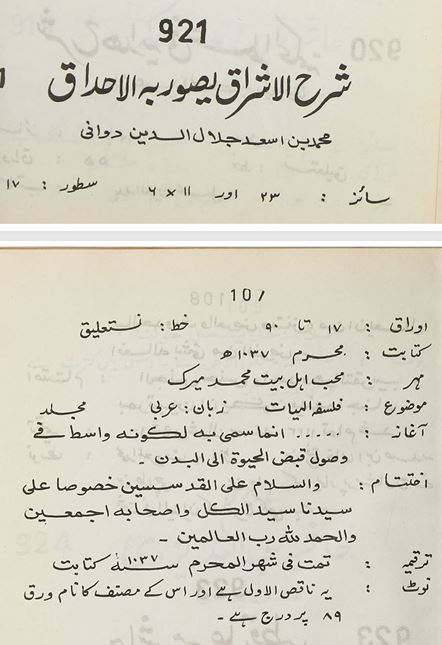 921
شرح الاشراق یصور بہ الاحداق
محمد بن اسعد جلال الدین دوانی
سائز : ۲۳ اور ۱۱ x ۶ سطور : ۱۷
107
اوراق : ۱۷ تا ۹۰ خط : نستعلیق
کتابت : محرم ۱۰۳۷ھ
مہر : محب اہل بیت محمد میرک
موضوع : فلسفہ الہیات زبان : عربی مجلد
آغاز : ..... انما سمی بہ لکونہ واسطہ فی
وصول قبض الحیوۃ الی البدن ۔
اختتام : والسلام علی القدسین خصوصا علی
سیدنا سید الکل واصحابہ اجمعین
والحمد للہ رب العالمین ۔
ترقیمہ : تمت فی شہر المحرم سنۃ ۱۰۳۷ کتابت
نوٹ : یہ ناقص الاول ہے اور اس کے مصنف کا نام ورق
۸۹ پر درج ہے ۔